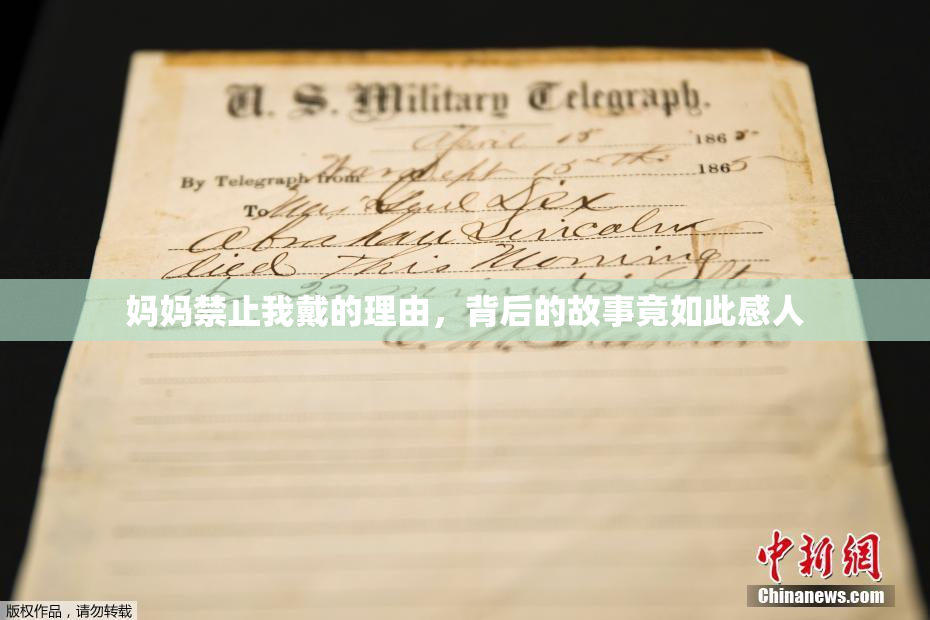 U. S. Military Telegraph.
April 15 1865
By Telegraph from War Dept 15th 1865
To Maj Genl Dix
Abraham Lincoln
died This Morning
at 22 minutes after
妈妈禁止我戴的理由，背后的故事竟如此感人
E. M. Stanton
中新网
Chinanews.com
版权作品，请勿转载